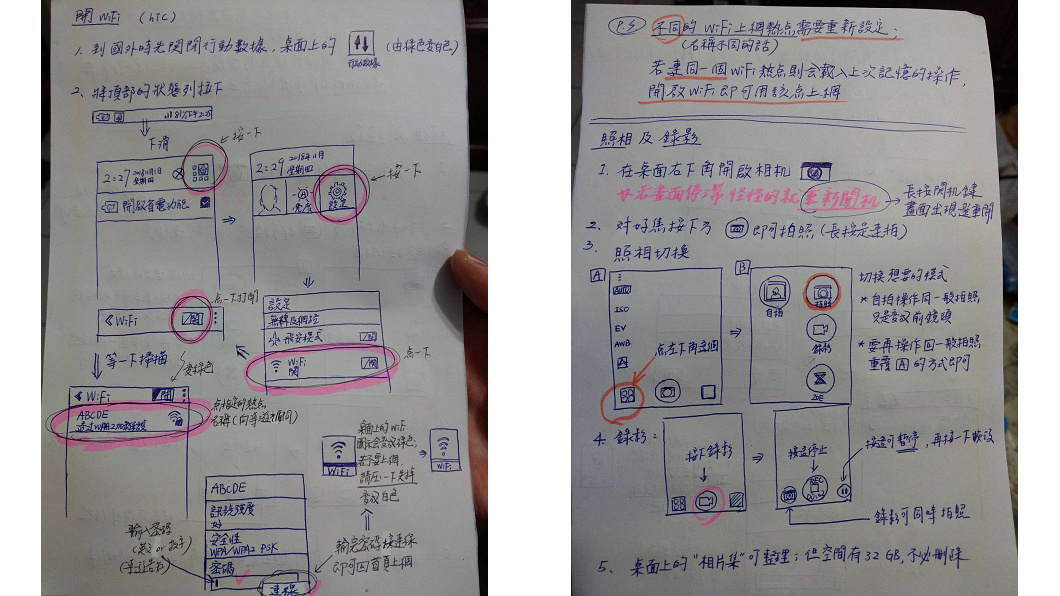 開 WiFi (hTC)
1. 到國外時先関閉行動數據, 桌面上的 (由綠色變白色)
行動數據
2. 將頂部的狀態列拉下
下滑
按一下
2:27 2018年11月1日 星期四
開啟省電功能
2:29 2018年11月1日 星期四
亮度
設定
按一下
設定
無線及網路
飛安模式 /関
WiFi 関 /関
点一下
點一下打開
<WiFi /関
等一下掃描
變綠色
<WiFi 開
ABCDE
透過WPA2
点指定的熱点
名稱(向導遊詢問)
ABCDE
訊號強度
好
安全性
WPA/WPA2 PSK
密碼
連線
輸入密碼
(英文 or 數字)
輸完密碼按連線
即可回首頁上網
桌面上的WiFi
圖示会變綠色,
若不要上網,
請在按一下
變成白色
WiFi
WiFi
P.S 不同的 WiFi上網熱点需要重新設定;
(名稱不同的話)
若連同一個WiFi熱点則会載入上次記憶的操作,
開啟WiFi即可用該点上網
照相及錄影
1. 在桌面右下角開啟相机
若畫面停滯怪怪的就重新開机
長按関机鍵
畫面出現選重開
2. 对好焦按下方 即可拍照(長按是連拍)
3. 照相切換
A
AUTO
ISO
EV
AWB
点左下角這個
B
自拍
拍照
錄影
ZOE
切換想要的模式
* 自拍操作同一般拍照
只是變成前鏡頭
* 要再操作回一般拍照
重覆A的方式即可
4. 錄影:
按下錄影
按這停止
REC
按這可暫停, 再按一下收設
錄影可同時拍照
5. 桌面上的"相片集"可整理; 但空間有32GB, 不必刪除